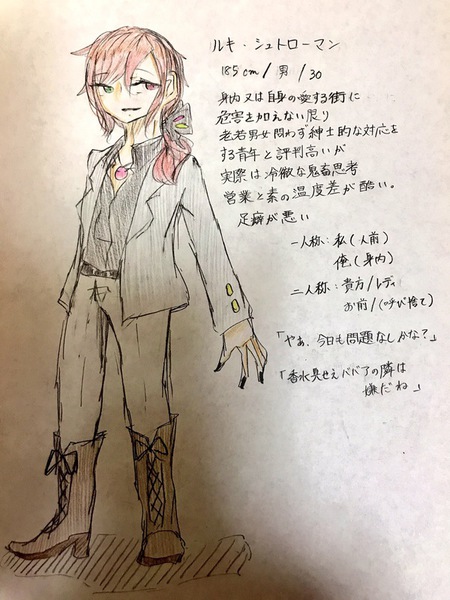 ルキ・シュトローマン
185cm/男/30
身内又は自身の愛する街に
危害を加えない限り
老若男女問わず紳士的な対応を
する青年と評判高いが
実際は冷徹な鬼畜思考
営業と素の温度差が酷い。
足癖が悪い
一人称:私(人前)
俺(身内)
二人称:貴方/レディ
お前/(呼び捨て)
「やぁ、今日も問題なしかな?」
「香水臭せえババアの隣は
嫌だね」